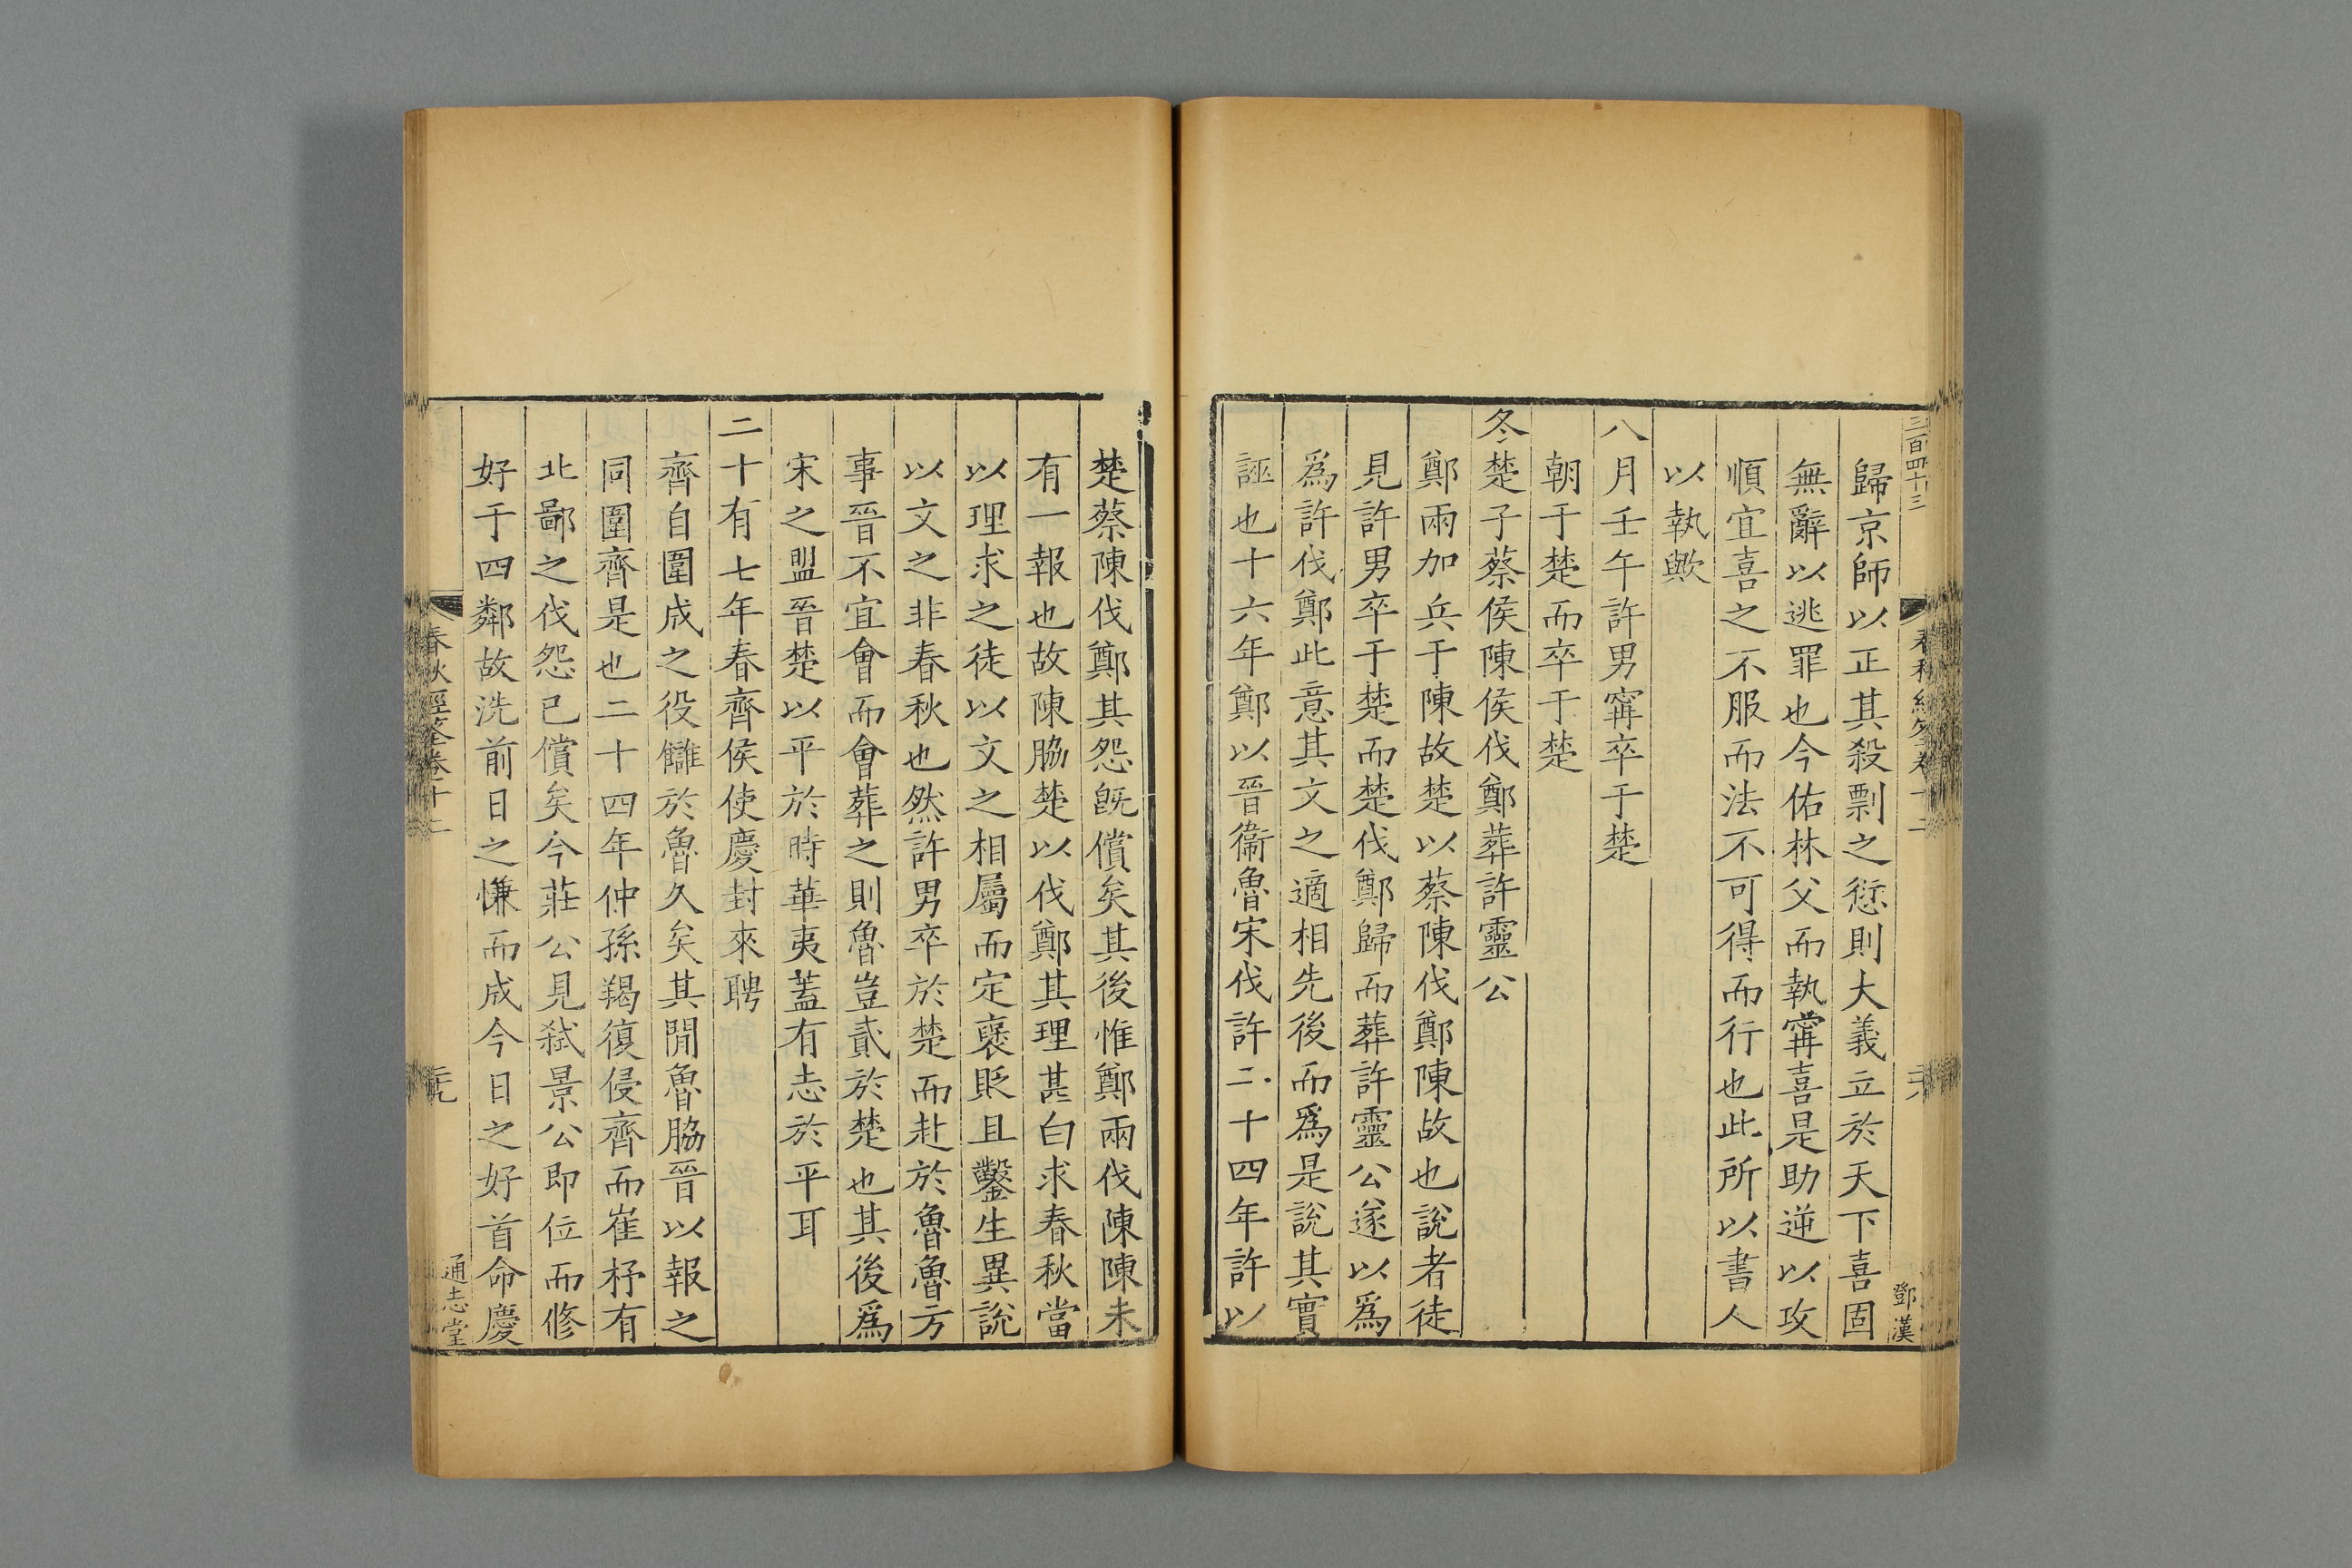 三百四十三
鄧漢
歸京師以正其殺剽之愆則大義立於天下喜固
無辭以逃罪也今佑林父而執甯喜是助逆以攻
順宜喜之不服而法不可得而行也此所以書人
以執歟
八月壬午許男甯卒于楚
朝于楚而卒于楚
冬楚子蔡侯陳侯伐鄭葬許靈公
鄭兩加兵于陳故楚以蔡陳伐鄭陳故也說者徒
見許男卒于楚而楚伐鄭歸而葬許靈公遂以為
為許伐鄭此意其文之適相先後而為是說其實
誣也十六年鄭以晉衞魯宋伐許二十四年許以
楚蔡陳伐鄭其怨旣償矣其後惟鄭兩伐陳陳未
有一報也故陳脇楚以伐鄭其理甚白求春秋當
以理求之徒以文之相屬而定襃貶且鑿生異說
以文之非春秋也然許男卒於楚而赴於魯魯方
事晉不宜會而會葬之則魯豈貳於楚也其後為
宋之盟晉楚以平於時華夷蓋有志於平耳
二十有七年春齊侯使慶封來聘
齊自圍成之役讎於魯久矣其閒魯脇晉以報之
同圍齊是也二十四年仲孫羯復侵齊而崔杼有
北鄙之伐怨已償矣今莊公見弑景公即位而修
好于四鄰故洗前日之慊而成今日之好首命慶
春秋經筌卷十二
通志堂